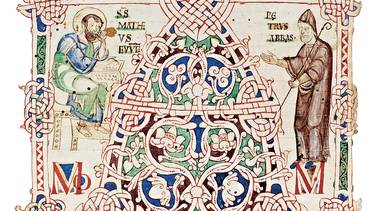 S̄S̄
MATHE
VS
EVVT
PE
TRVS
ABBAS
M
M